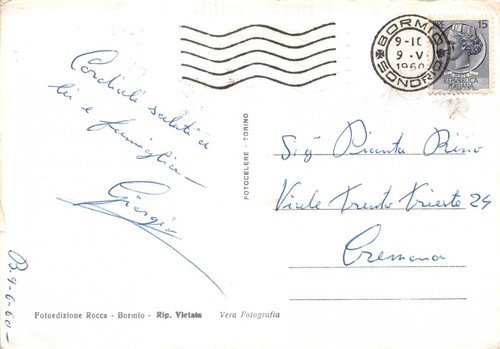 Cordiali saluti a
lei e famiglia -
Giorgio
B. 9-6-60 -
Fotoedizione Rocca - Bormio - Rip. Vietata Vera Fotografia
FOTOCELERE - TORINO
BORMIO
9-1
9 · V
1960
SONDRIO
15
Sig Pino
Viale Trento Trieste 24
Cremona